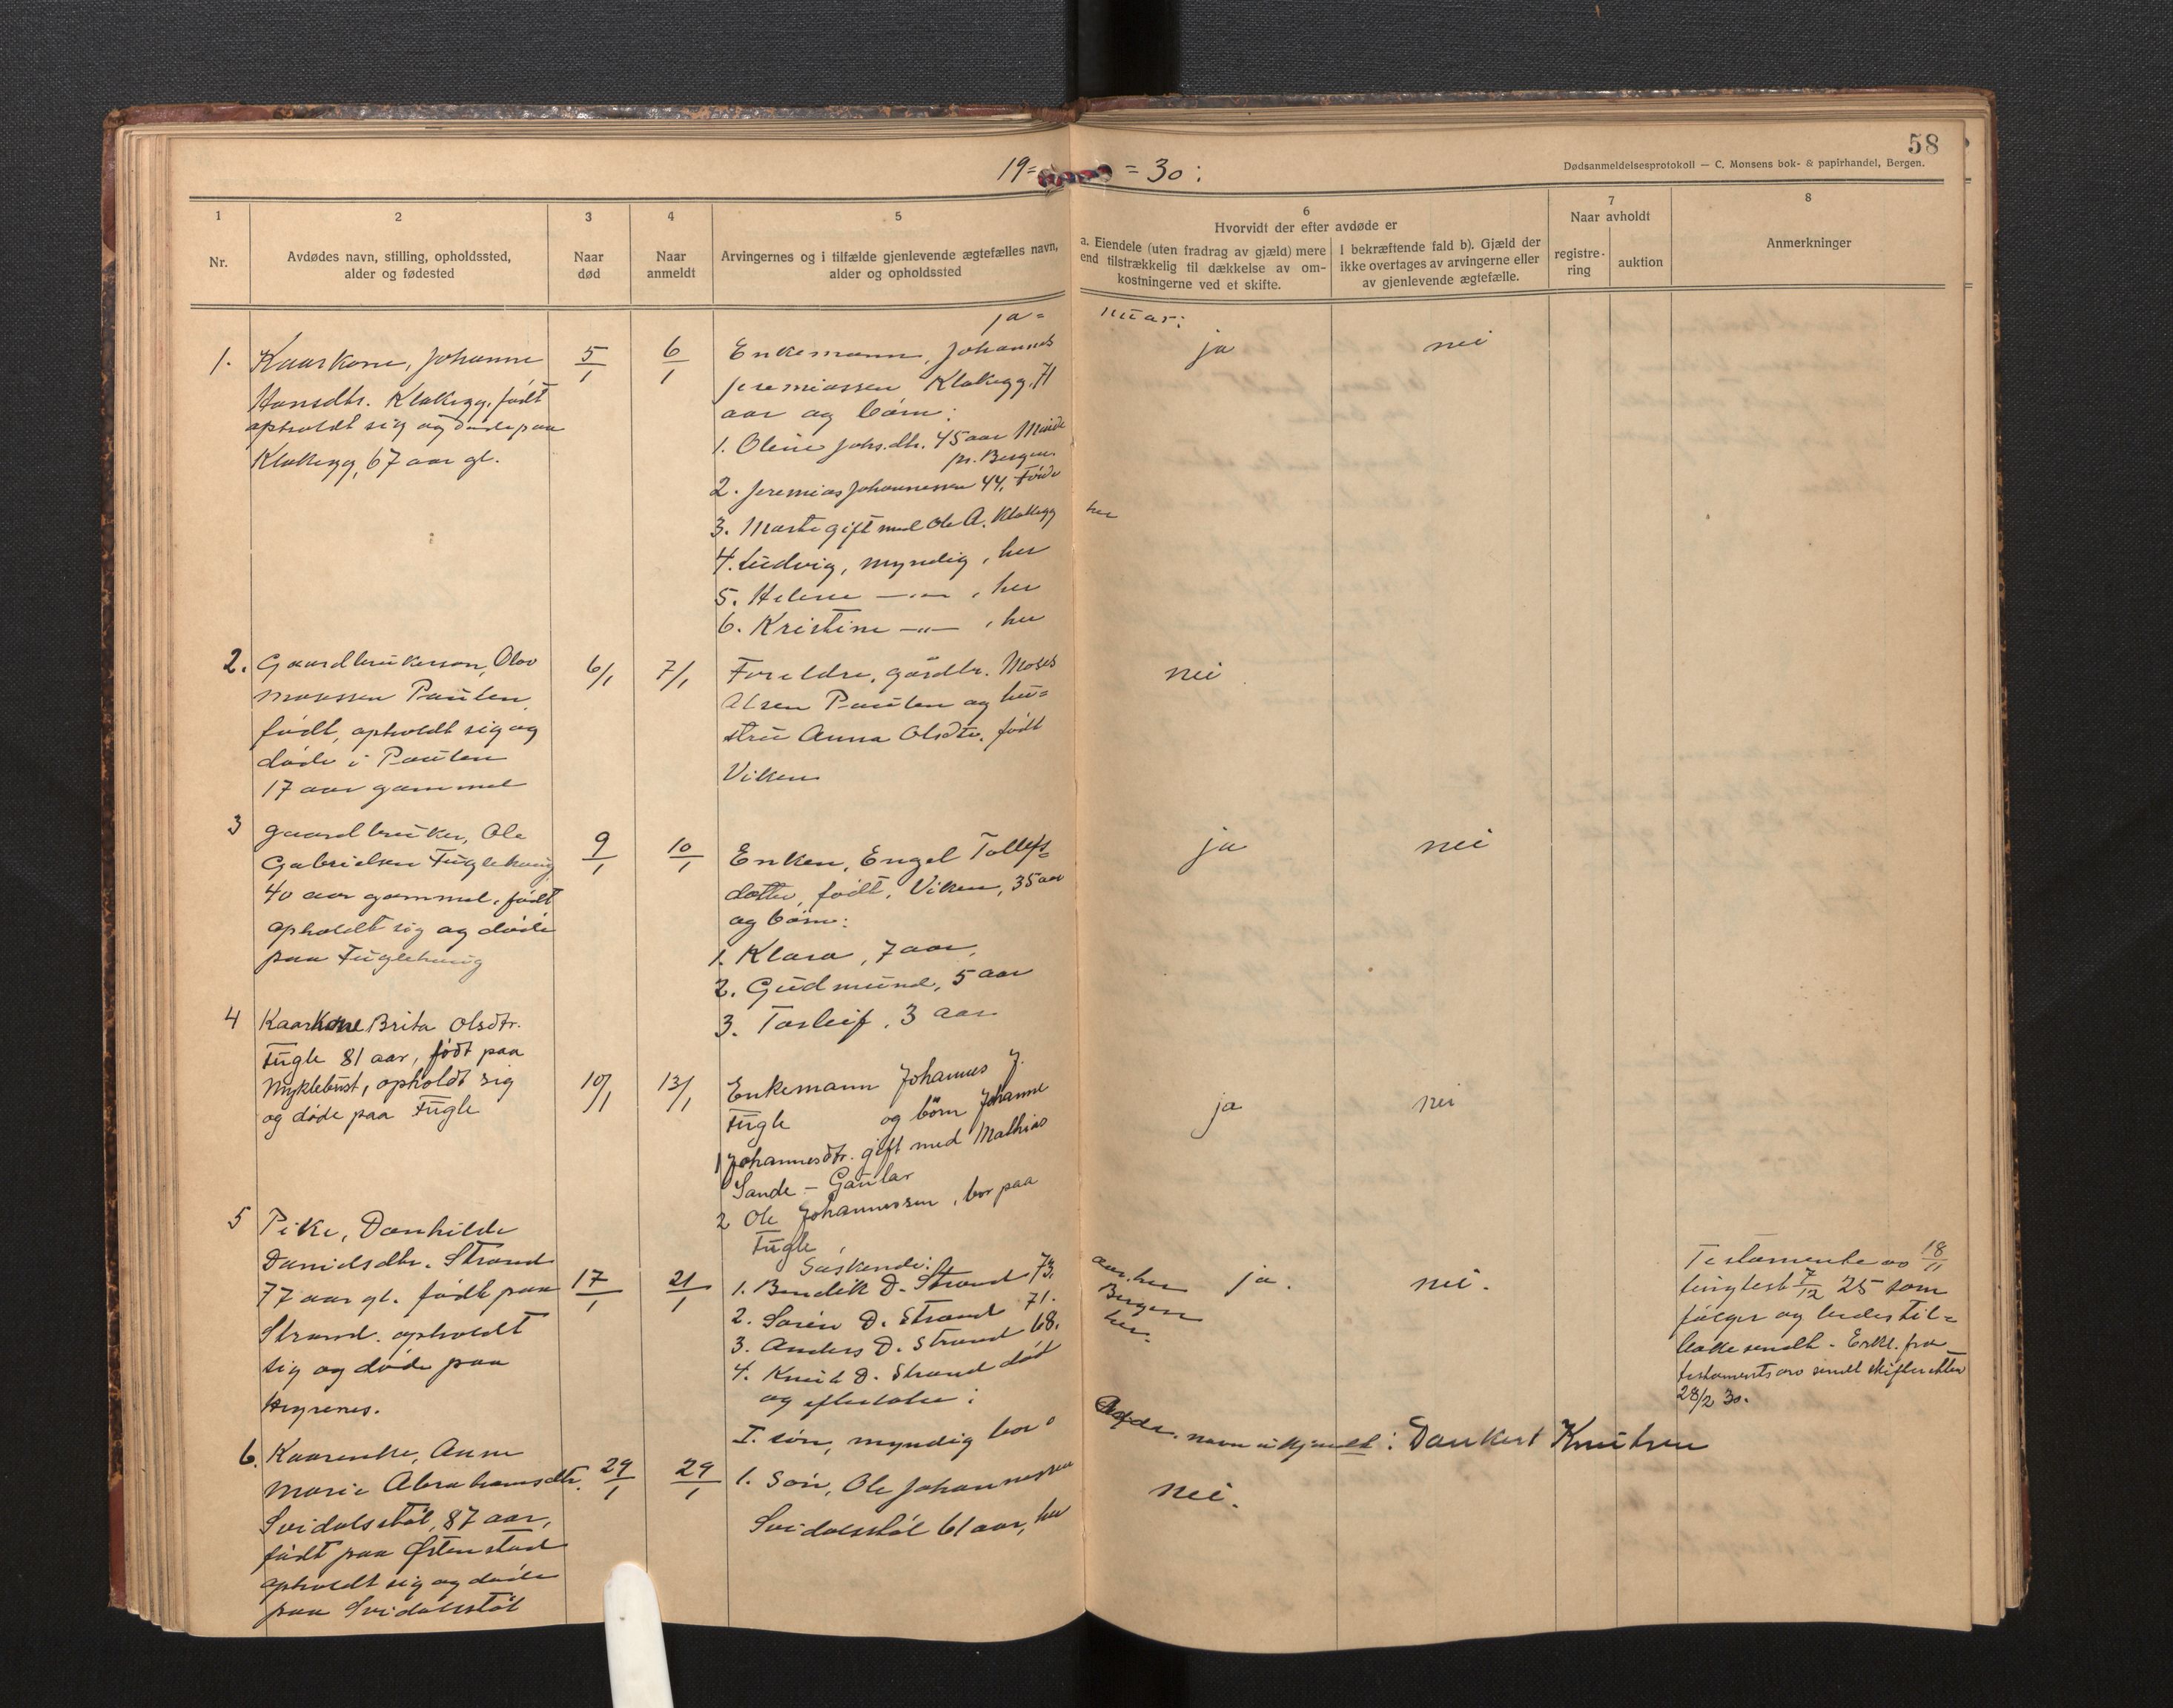 58
Dødsanmeldelsesprotokoll — C. Monsens bok- & papirhandel, Bergen.
19= = 30:
1
2
3
4
5
6
7
8
Nr.
Avdødes navn, stilling, opholdssted,
alder og fødested
Naar
død
Naar
anmeldt
Arvingernes og i tilfælde gjenlevende ægtefælles navn,
alder og opholdssted
Hvorvidt der efter avdøde er
a. Eiendele (uten fradrag av gjæld) mere
end tilstrækkelig til dækkelse av om-
kostningerne ved et skifte.
I bekræftende fald b). Gjæld der
ikke overtages av arvingerne eller
av gjenlevende ægtefælle.
Naar avholdt
registre-
ring
auktion
Anmerkninger
ja= nuar:
1.
Kaarkone, Johanne
Hansdtr. Klakegg, født
opholdt sig og døde paa
Klakegg, 67 aar gl.
5/1
6/1
Enkemann, Johannes
Jeremiassen Klakegg, 71
aar og børn:
1. Oline Johs.dtr. 45 aar Minde
pr. Bergen.
2. Jeremias Johannessen 44, Førde
3. Marte gift med Ole A. Klakegg her
4. Ludvig, myndig, her
5. Helene —"— , her
6. Kristine —"— , her
ja
nei
2.
Gaardbrukerson, Olav
Mosessen Paulen,
født, opholdt sig og
døde i Paulen
17 aar gammel
6/1
7/1
Foreldre, gårdbr. Moses
Olsen Paulen og hu=
stru Anna Olsdtr. født
Viken
nei
3
Gaardbruker, Ole
Gabrielsen Fuglehaug
40 aar gammel, født
opholdt sig og døde
paa Fuglehaug
9/1
10/1
Enken, Engel Tollefs=
datter, født, Viken, 35 aar
og børn:
1. Klara, 7 aar,
2. Gudmund, 5 aar
3. Torleif, 3 aar
ja
nei
4
Kaarkone Brita Olsdtr.
Fugle 81 aar, født paa
Myklebust, opholdt sig
og døde paa Fugle
10/1
13/1
Enkemann Johannes J.
Fugle og börn Johanne
1 Johannesdtr. gift med Mathias
Sande – Gaular
2 Ole Johannessen, bor paa
Fugle
ja
nei
5
Pike, Danhilde
Danielsdtr. Strand
77 aar gl. født paa
Strand. opholdt
sig og døde paa
Høyrenes.
17/1
21/1
Søskende:
1. Bendik D. Strand 73, aar. her
2. Søren D. Strand 71. Bergen
3. Anders D. Strand 68. her.
4. Knut D. Strand død
og efterlater:
I. søn, myndig bor navn ukjendt: Dankert Knutsen
ja.
nei.
Testamente av 18/11
tinglest 7/12 25 som
følger og bedes til=
bake sendt. Erkl. fra
testamentsarv sendt skifteretten
28/2 30.
6.
Kaarenke, Anne
Marie Abrahamsdtr.
Svidalsstøl, 87 aar,
født paa Østenstad
opholdt sig og døde
paa Svidalsstøl
29/1
29/1
1. Søn, Ole Johannessen
Svidalsstøl 61 aar, her
nei.